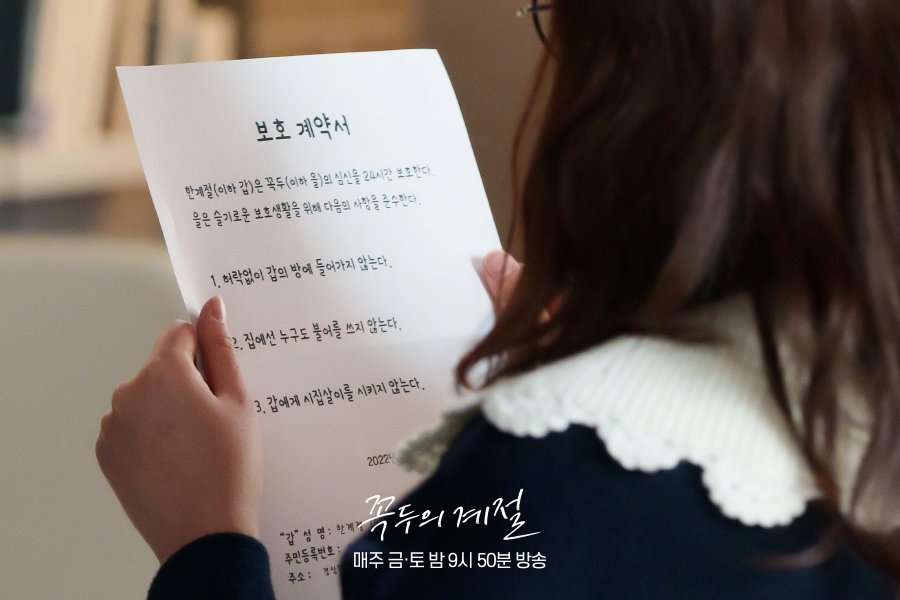 보호 계약서
한계절(이하 갑)은 꼭두(이하 을)의 심신을 24시간 보호한다.
을은 슬기로운 보호생활을 위해 다음의 사항을 준수한다.
1. 허락없이 갑의 방에 들어가지 않는다.
2. 집에선 누구도 불어를 쓰지 않는다.
3. 갑에게 시집살이를 시키지 않는다.
2022
"갑" 성 명 : 한계
주민등록번호 :
주소 : 경상
꼭두의 계절
매주 금·토 밤 9시 50분 방송